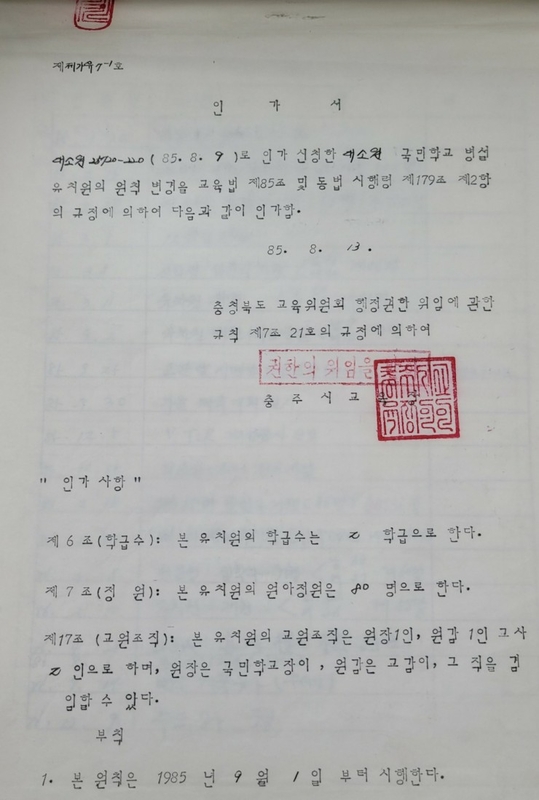 제허가유7-1호
인 가 서
대소원 28720-220 ( 85. 8. 9 )로 인가 신청한 대소원 국민학교 병설
유치원의 원칙 변경을 교육법 제85조 및 동법 시행령 제179조 제2항
의 규정에 의하여 다음과 같이 인가함.
85. 8. 13.
충청북도 교육위원회 행정권한 위임에 관한
규칙 제7조 21호의 규정에 의하여
권한의 위임을
충 주 시 교 육 장
" 인가 사항 "
제 6 조(학급수): 본 유치원의 학급수는 2 학급으로 한다.
제 7 조(정 원): 본 유치원의 원아정원은 80 명으로 한다.
제17조 (교원조직): 본 유치원의 교원조직은 원장1인, 원감 1인 교사
2 인으로 하며, 원장은 국민학교장이, 원감은 교감이, 그 직을 겸
임할 수 있다.
부칙
1. 본 원칙은 1985 년 9 월 1 일 부터 시행한다.